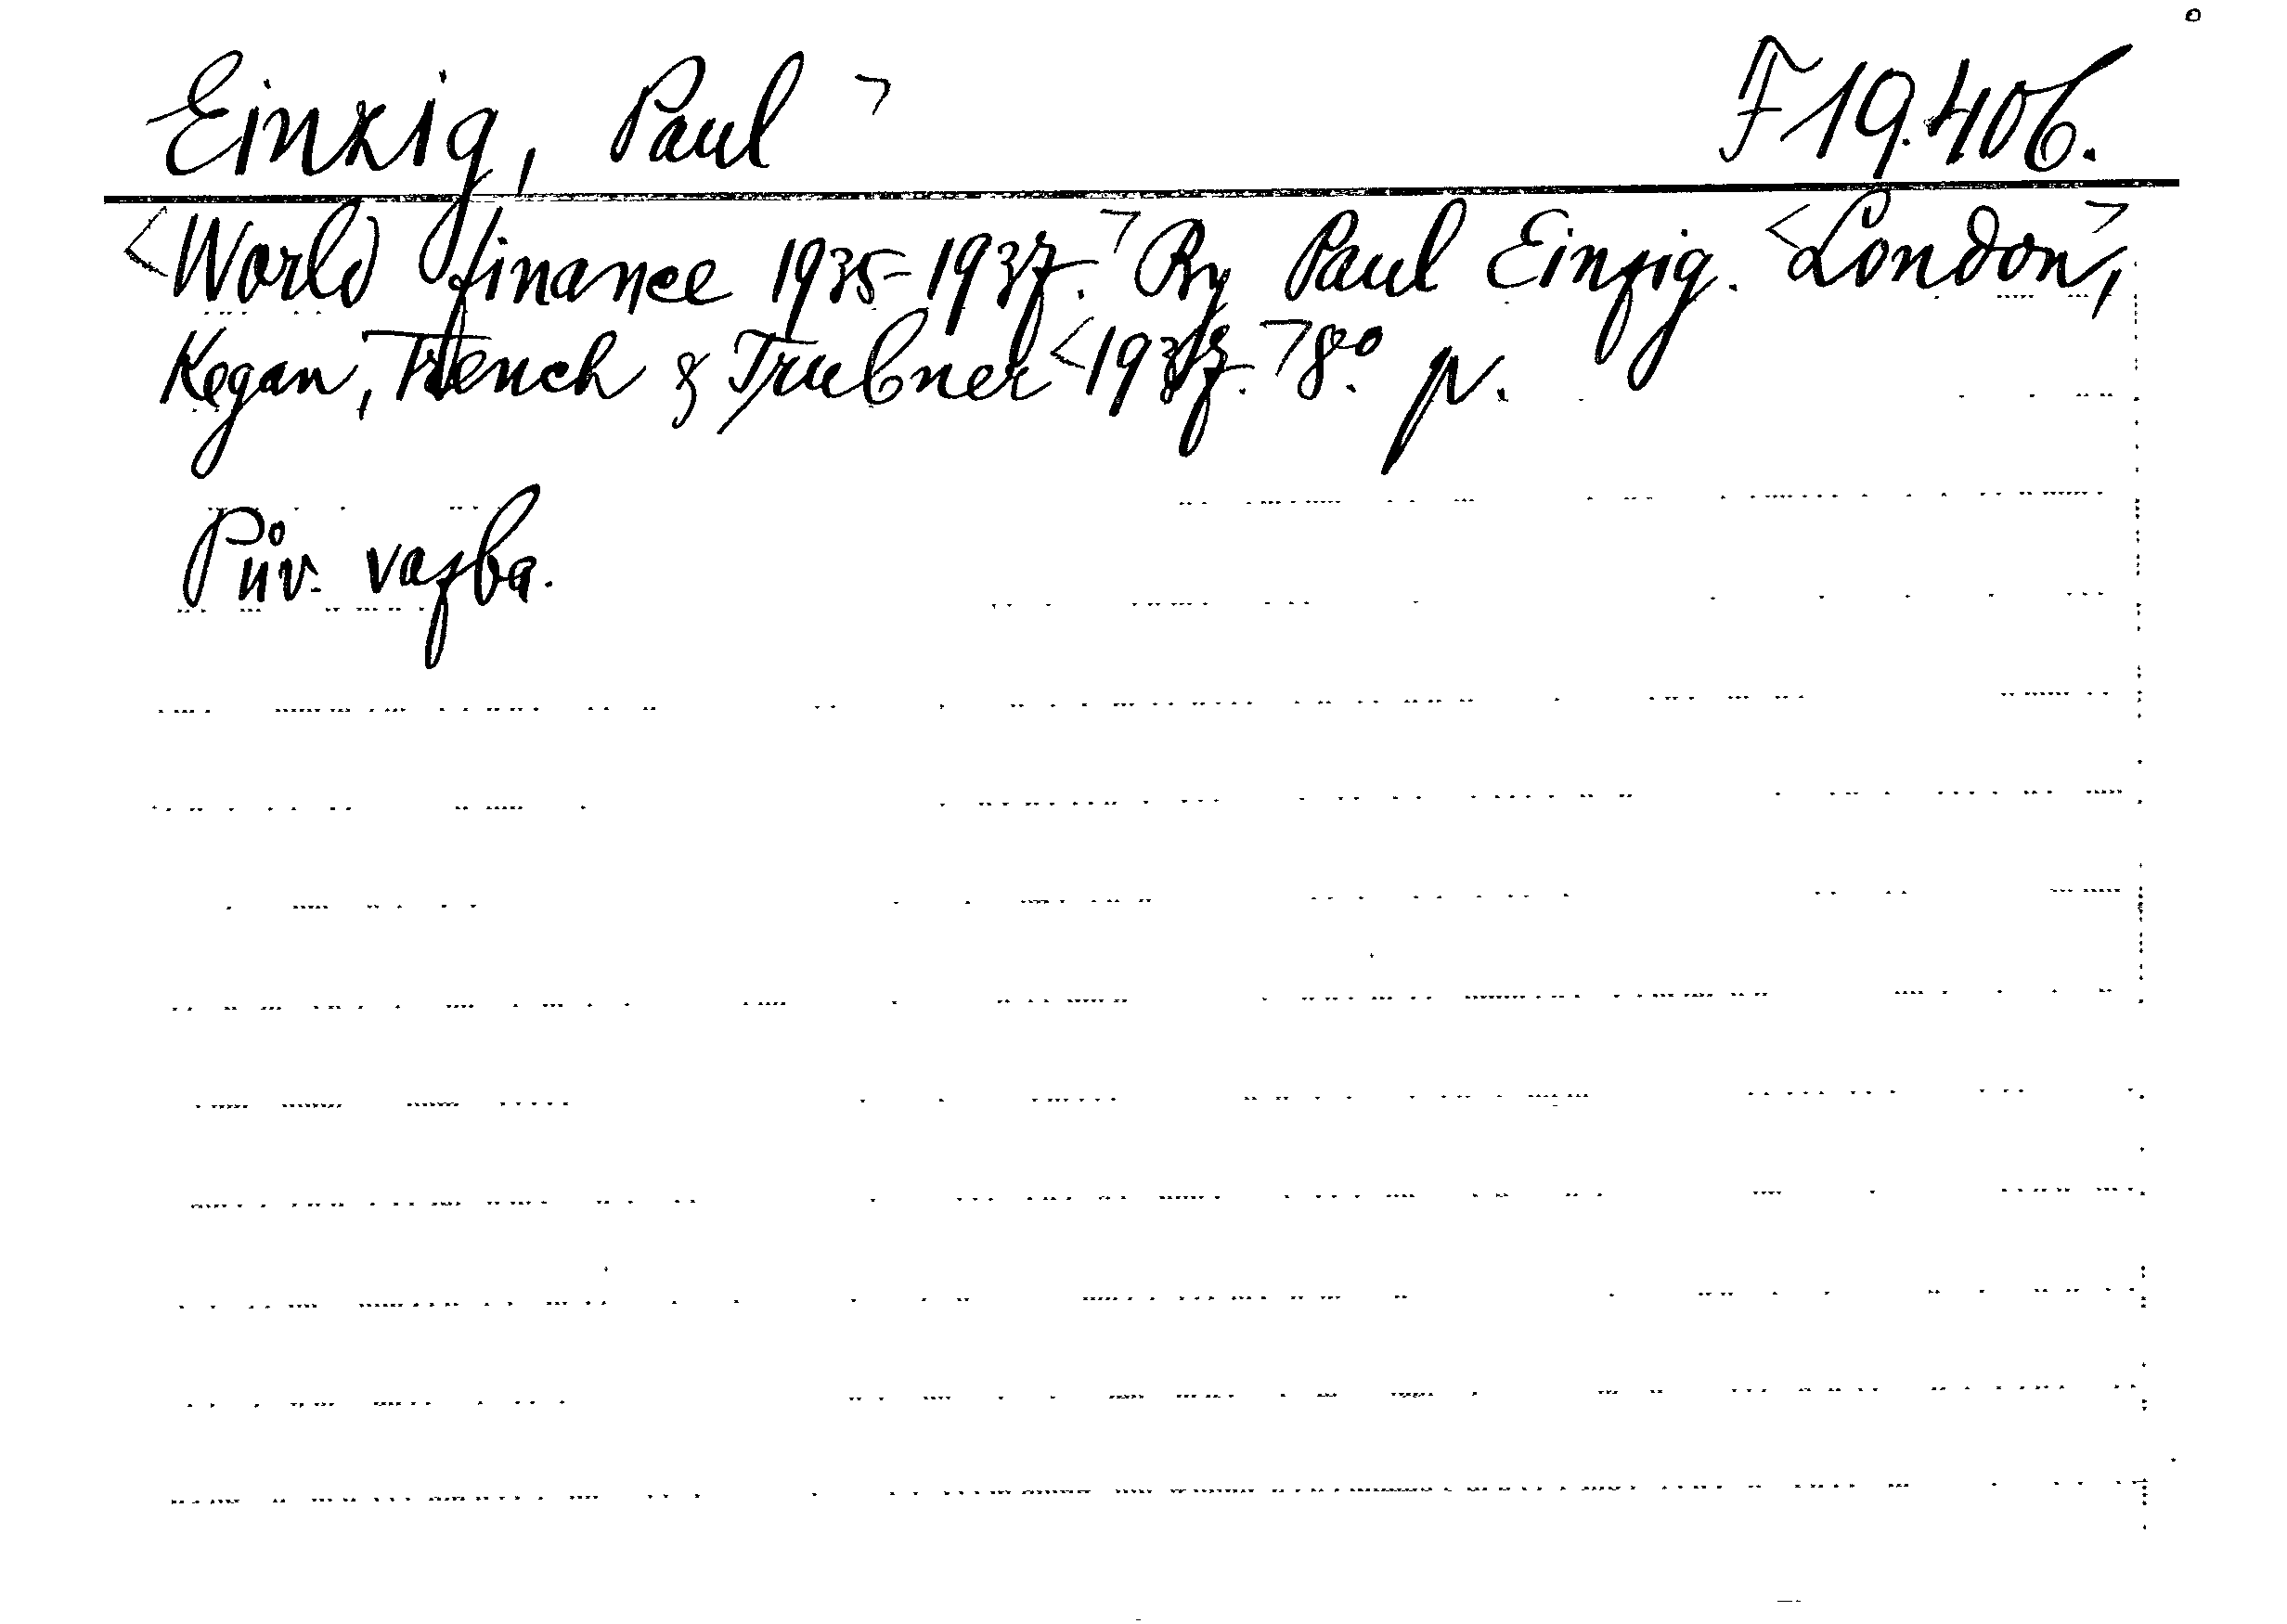 Einzig, Paul ㄱ F 19.406.
<World finance 1935-1937.ㄱ By Paul Einzig. <Londonㄱ,
Kegan, Trench & Trubner <1937.ㄱ 8.° p.
Pův. vazba.